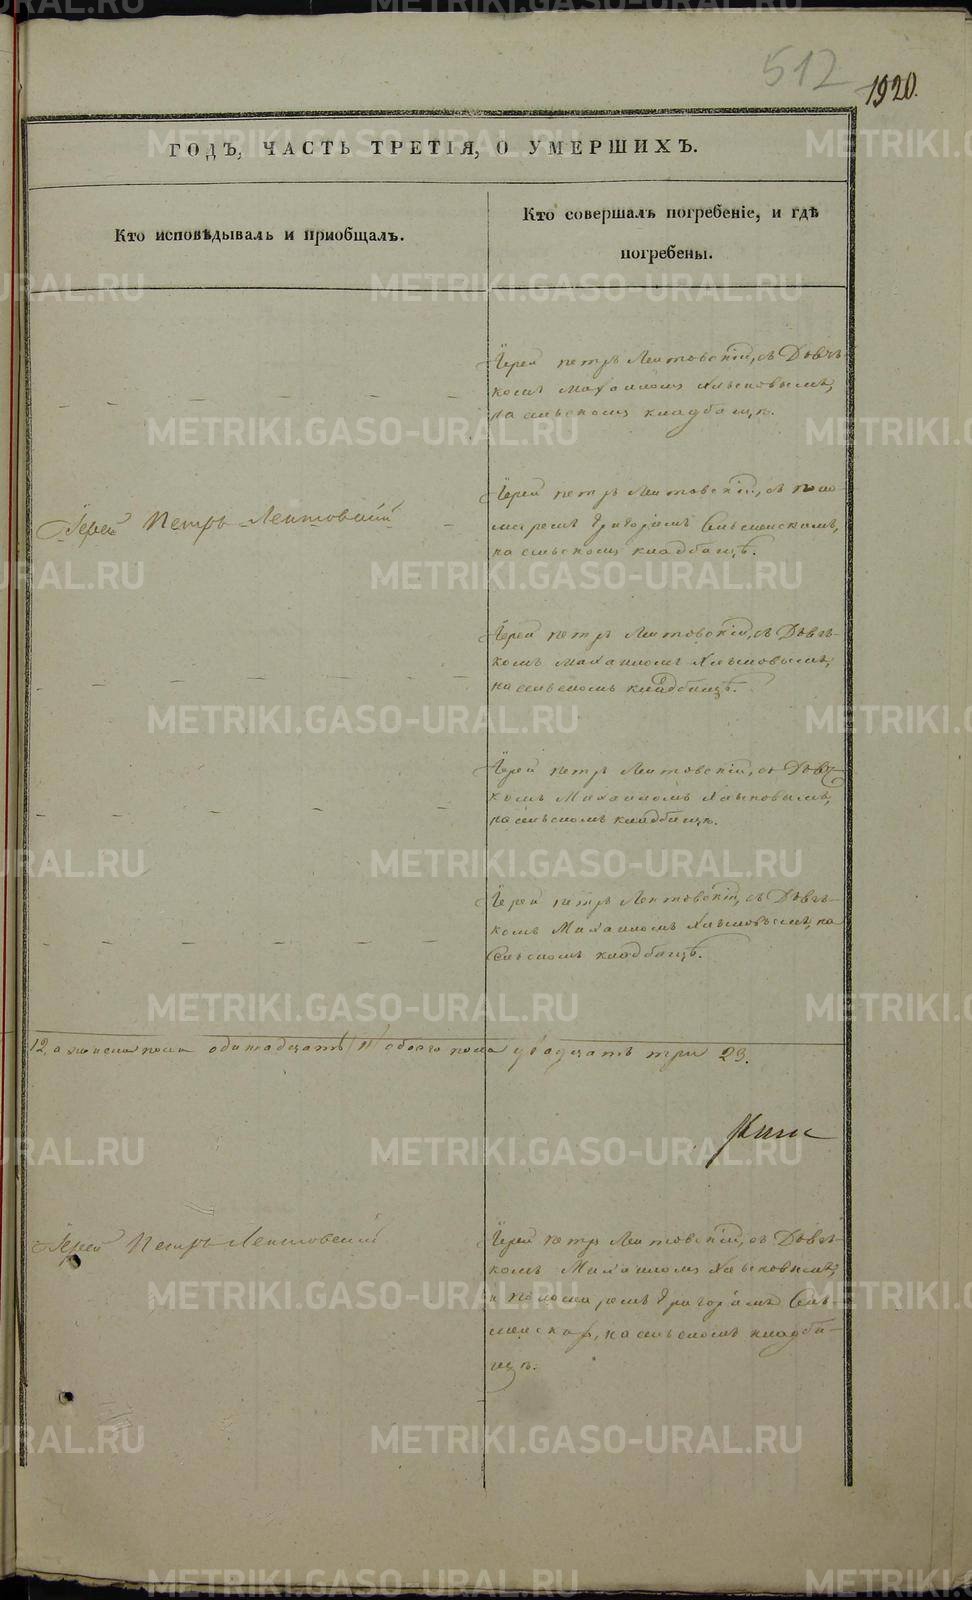 512
1920.
ГОДЪ, ЧАСТЬ ТРЕТІЯ, О УМЕРШИХЪ.
Кто исповѣдывалъ и пріобщалъ.
Кто совершалъ погребеніе, и гдѣ
погребены.
Іерей Петръ Лентовскій, съ Дьяч-
комъ Михаиломъ
на сельскомъ кладбищѣ.
Іерей Петръ Лентовскій
Іерей Петръ Лентовскій, съ поно-
маремъ Григоріемъ
на сельскомъ кладбищѣ.
Іерей Петръ Лентовскій, съ Дьяч-
комъ Михаиломъ
на сельскомъ кладбищѣ.
Іерей Петръ Лентовскій, съ Дьяч-
комъ Михаиломъ
на сельскомъ кладбищѣ.
Іерей Петръ Лентовскій, съ Дьяч-
комъ Михаиломъ на
Сельскомъ кладбищѣ.
12, а женска пола одинадцать 11 обоего пола двадцать три 23.
Іерей Петръ Лентовскій
Іерей Петръ Лентовскій, съ Дьяч-
комъ Михаиломъ
и пономаремъ Григоріемъ
на сельскомъ кладби-
щѣ.
METRIKI.GASO-URAL.RU